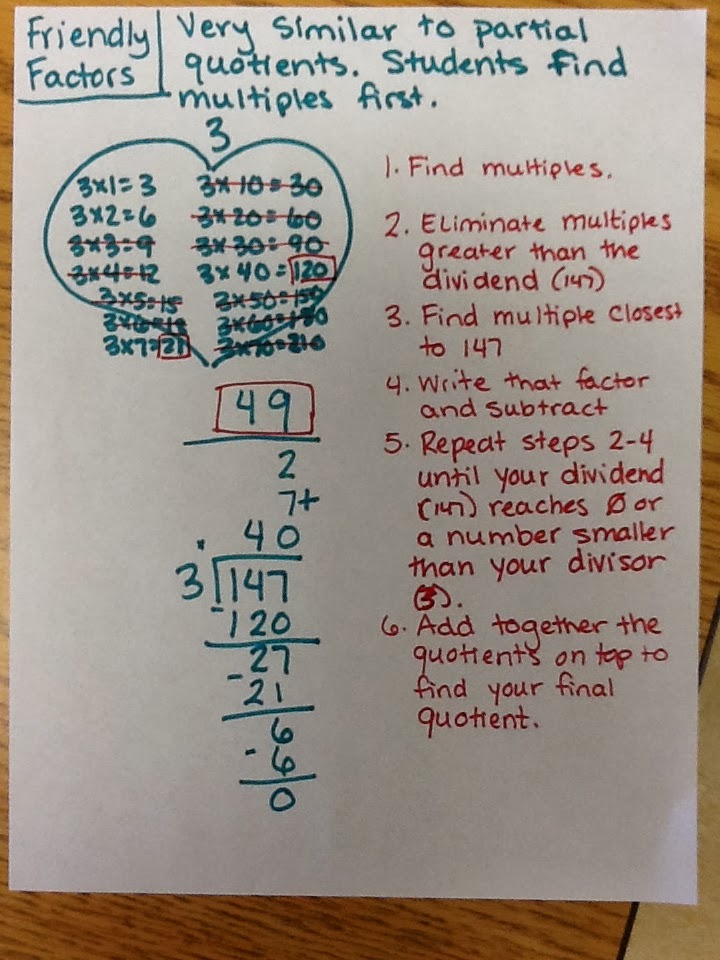 Friendly Factors
Very similar to partial
quotients. Students find
multiples first.
3
3×1=3 3×10=30
3×2=6 3×20=60
3×3=9 3×30=90
3×4=12 3×40=120
3×5=15 3×50=150
3×6=18 3×60=180
3×7=21 3×70=210
49
2
7+
40
3 147
-120
27
-21
6
-6
0
1. Find multiples.
2. Eliminate multiples
greater than the
dividend (147)
3. Find multiple closest
to 147
4. Write that factor
and subtract
5. Repeat steps 2-4
until your dividend
(147) reaches Ø or
a number smaller
than your divisor
(3).
6. Add together the
quotients on top to
find your final
quotient.